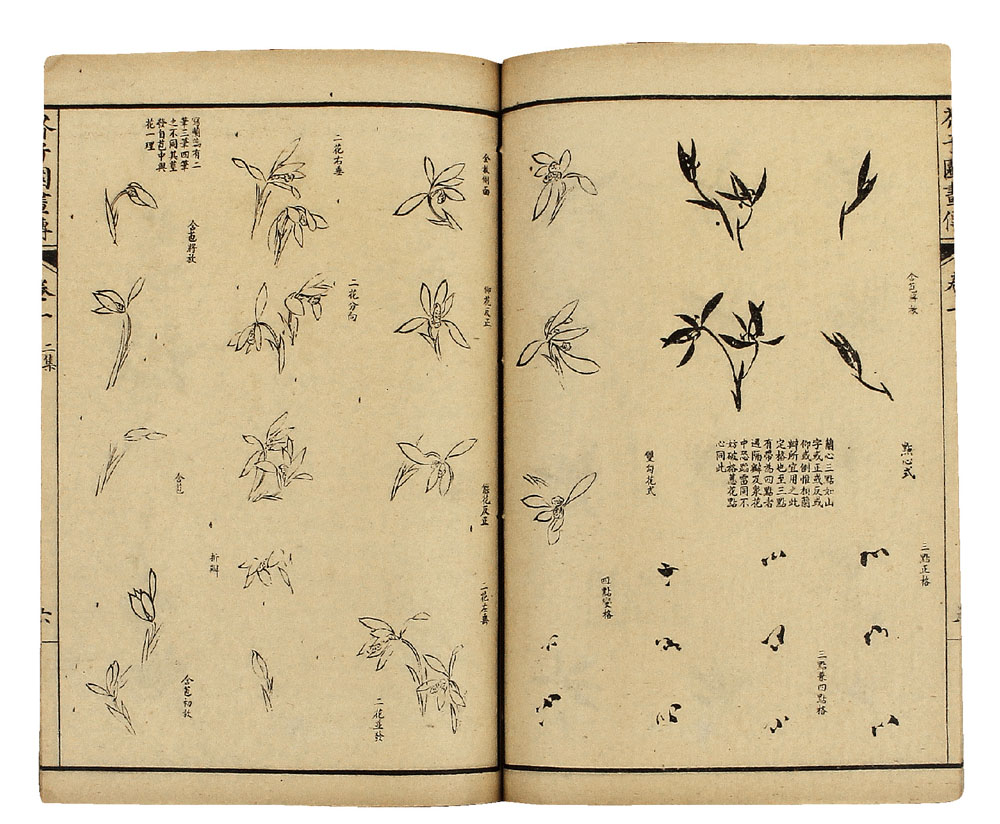 芥子園畫傳
卷一
含苞
點心式
蘭心三點如山
字或正或反或
仰或倒惟相蘭
瓣所宜用之此
定格也至三點
有帶為四點者
遇隔瓣及衆花
中恐蹈雷同不
妨破格蕙花點
心同此
三點正格
三點兼四點格
雙勾花式
四點變格
全放側面
仰花反正
偃花反正
二花左垂
二花並發
二花右垂
二花分向
折瓣
寫蘭蕊有二
筆三筆四筆
之不同其莖
發自苞中與
花一理
含苞將放
含苞
含苞初放
芥子園畫傳
卷一
二集
六